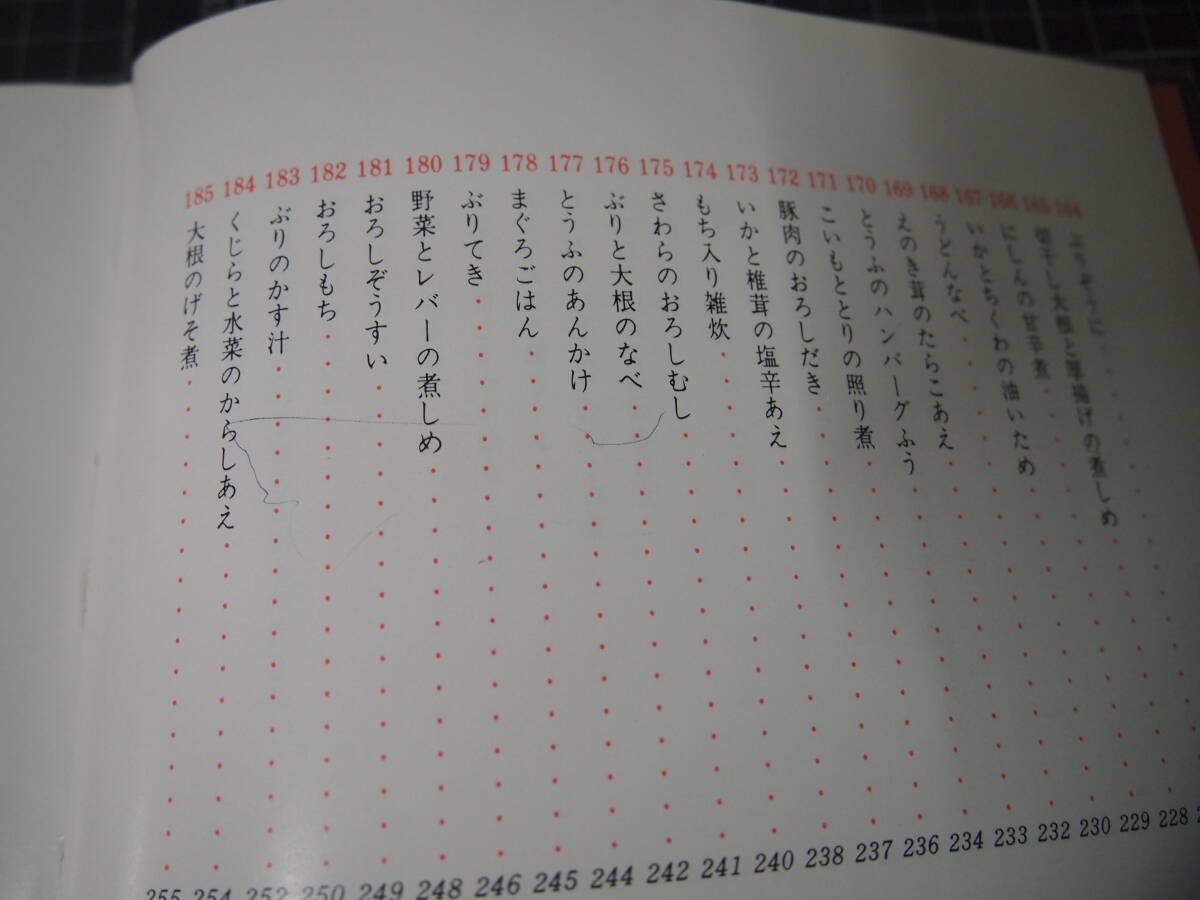 164 ぶりぞうに
165 切干し大根と厚揚げの煮しめ 228
166 にしんの甘辛煮 229
167 いかとちくわの油いため 230
168 うどんなべ 232
169 えのき茸のたらこあえ 233
170 とうふのハンバーグふう 234
171 こいもととりの照り煮 236
172 豚肉のおろしだき 237
173 いかと椎茸の塩辛あえ 238
174 もち入り雑炊 240
175 さわらのおろしむし 241
176 ぶりと大根のなべ 242
177 とうふのあんかけ 244
178 まぐろごはん 245
179 ぶりてき 246
180 野菜とレバーの煮しめ 248
181 おろしぞうすい 249
182 おろしもち 250
183 ぶりのかす汁 252
184 くじらと水菜のからしあえ 254
185 大根のげそ煮 255